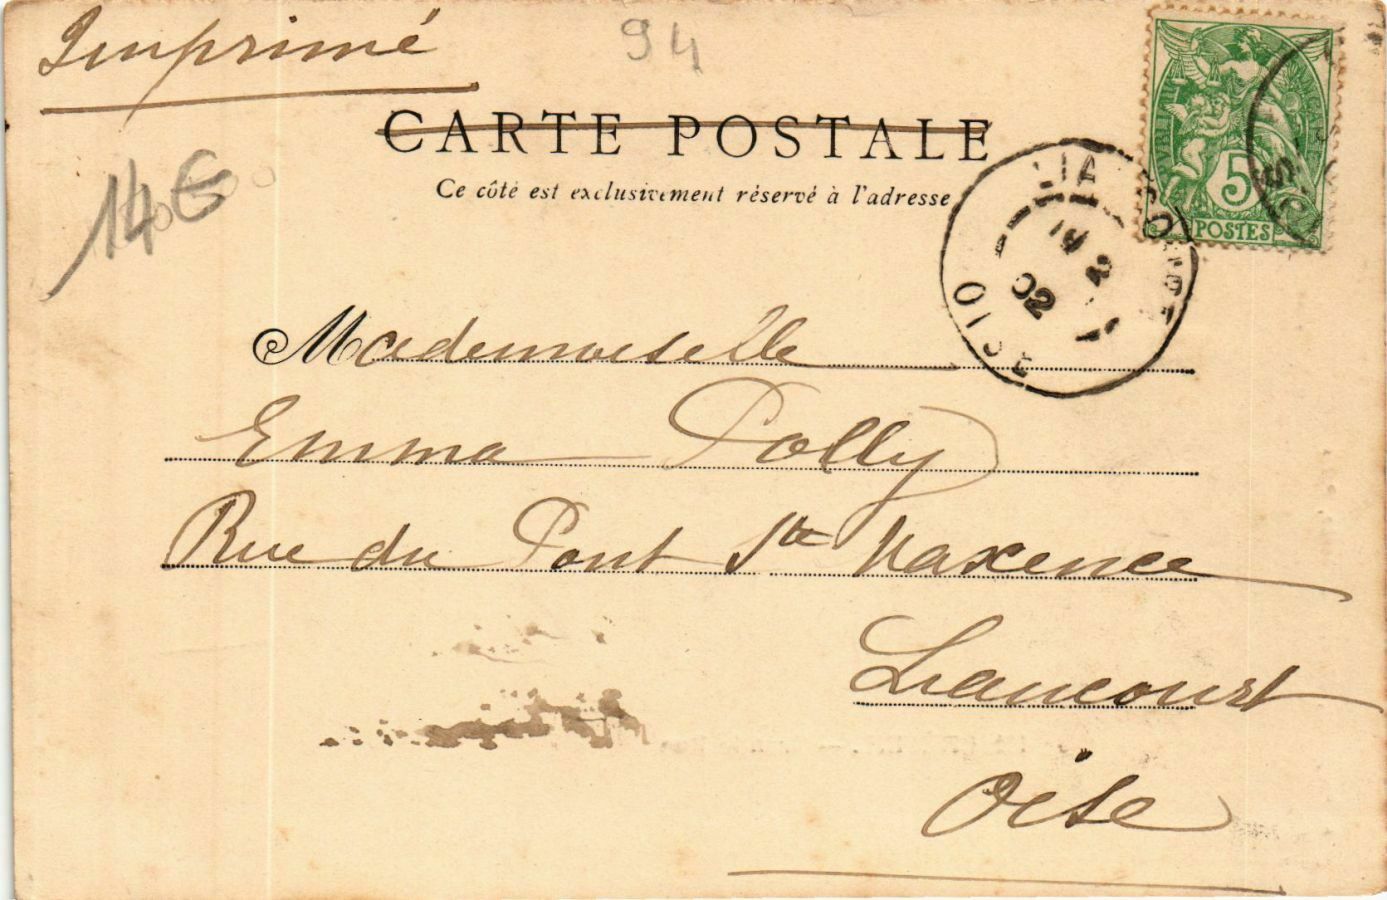 Imprimé
94
CARTE POSTALE
Ce côté est exclusivement réservé à l'adresse
14€
5
POSTES
OISE
19 2
02
Mademoiselle
Emma Polly
Rue du Pont Ste Maxence
Liancourt
Oise